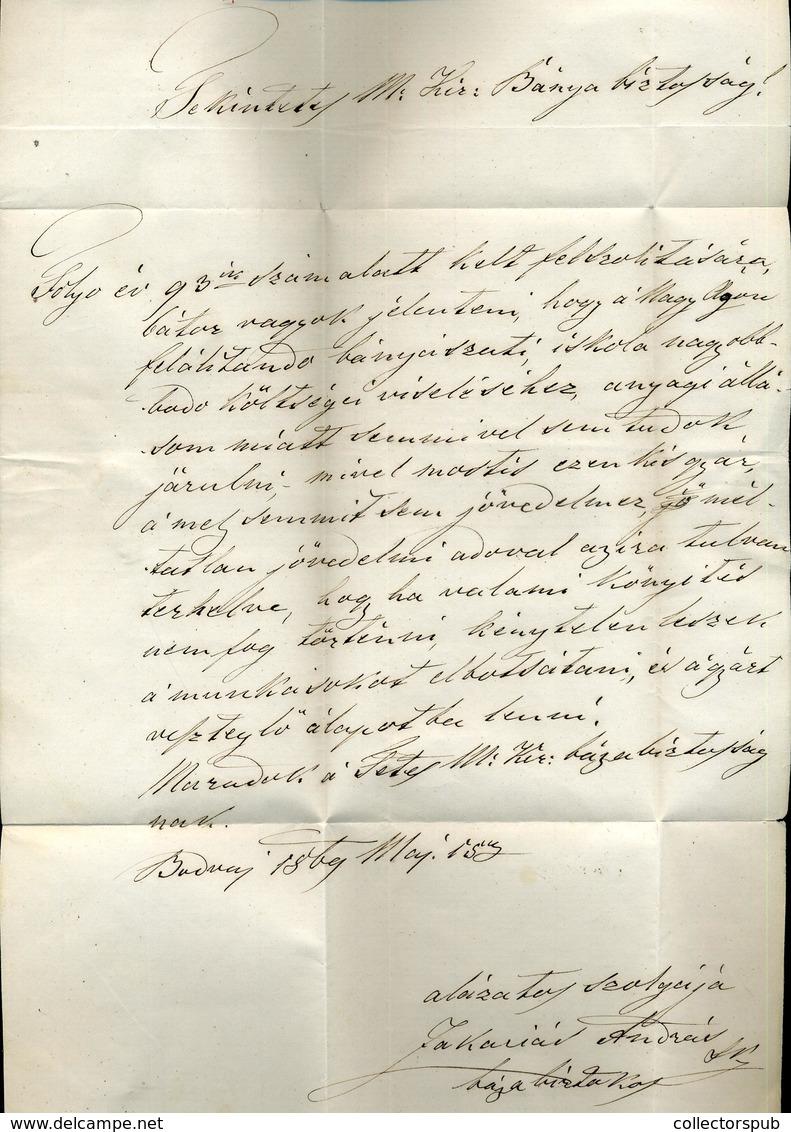 Tekintetes M: Kir: Bánya biztosság!
Folyo év 93ik szám alatt kelt felszolitására,
bátor vagyok jelenteni, hogy á Nagy Ágon
felálitando bányászati, iskola nagyobb-
bodo költségei viseléséhez, anyagi állá-
som miatt semmivel sem tudok
járulni, mivel mostis ezen kis gyár,
á mely semmit sem jövedelmez, mél-
tatlan jövedelmi adoval azira tulvan
terhelve, hogy ha valami könyités
nem fog történni, kénytelen leszek
á munkásokot elbotsátani, és á gyárt
veszteglő álapotba tenni.
Maradok á Ttes M: Kir: báya biztosság
nak.
Bodvaj 1869 Maj. 15n
alázatos szolgája
Zakariás András
báya birtokos
collectorspub